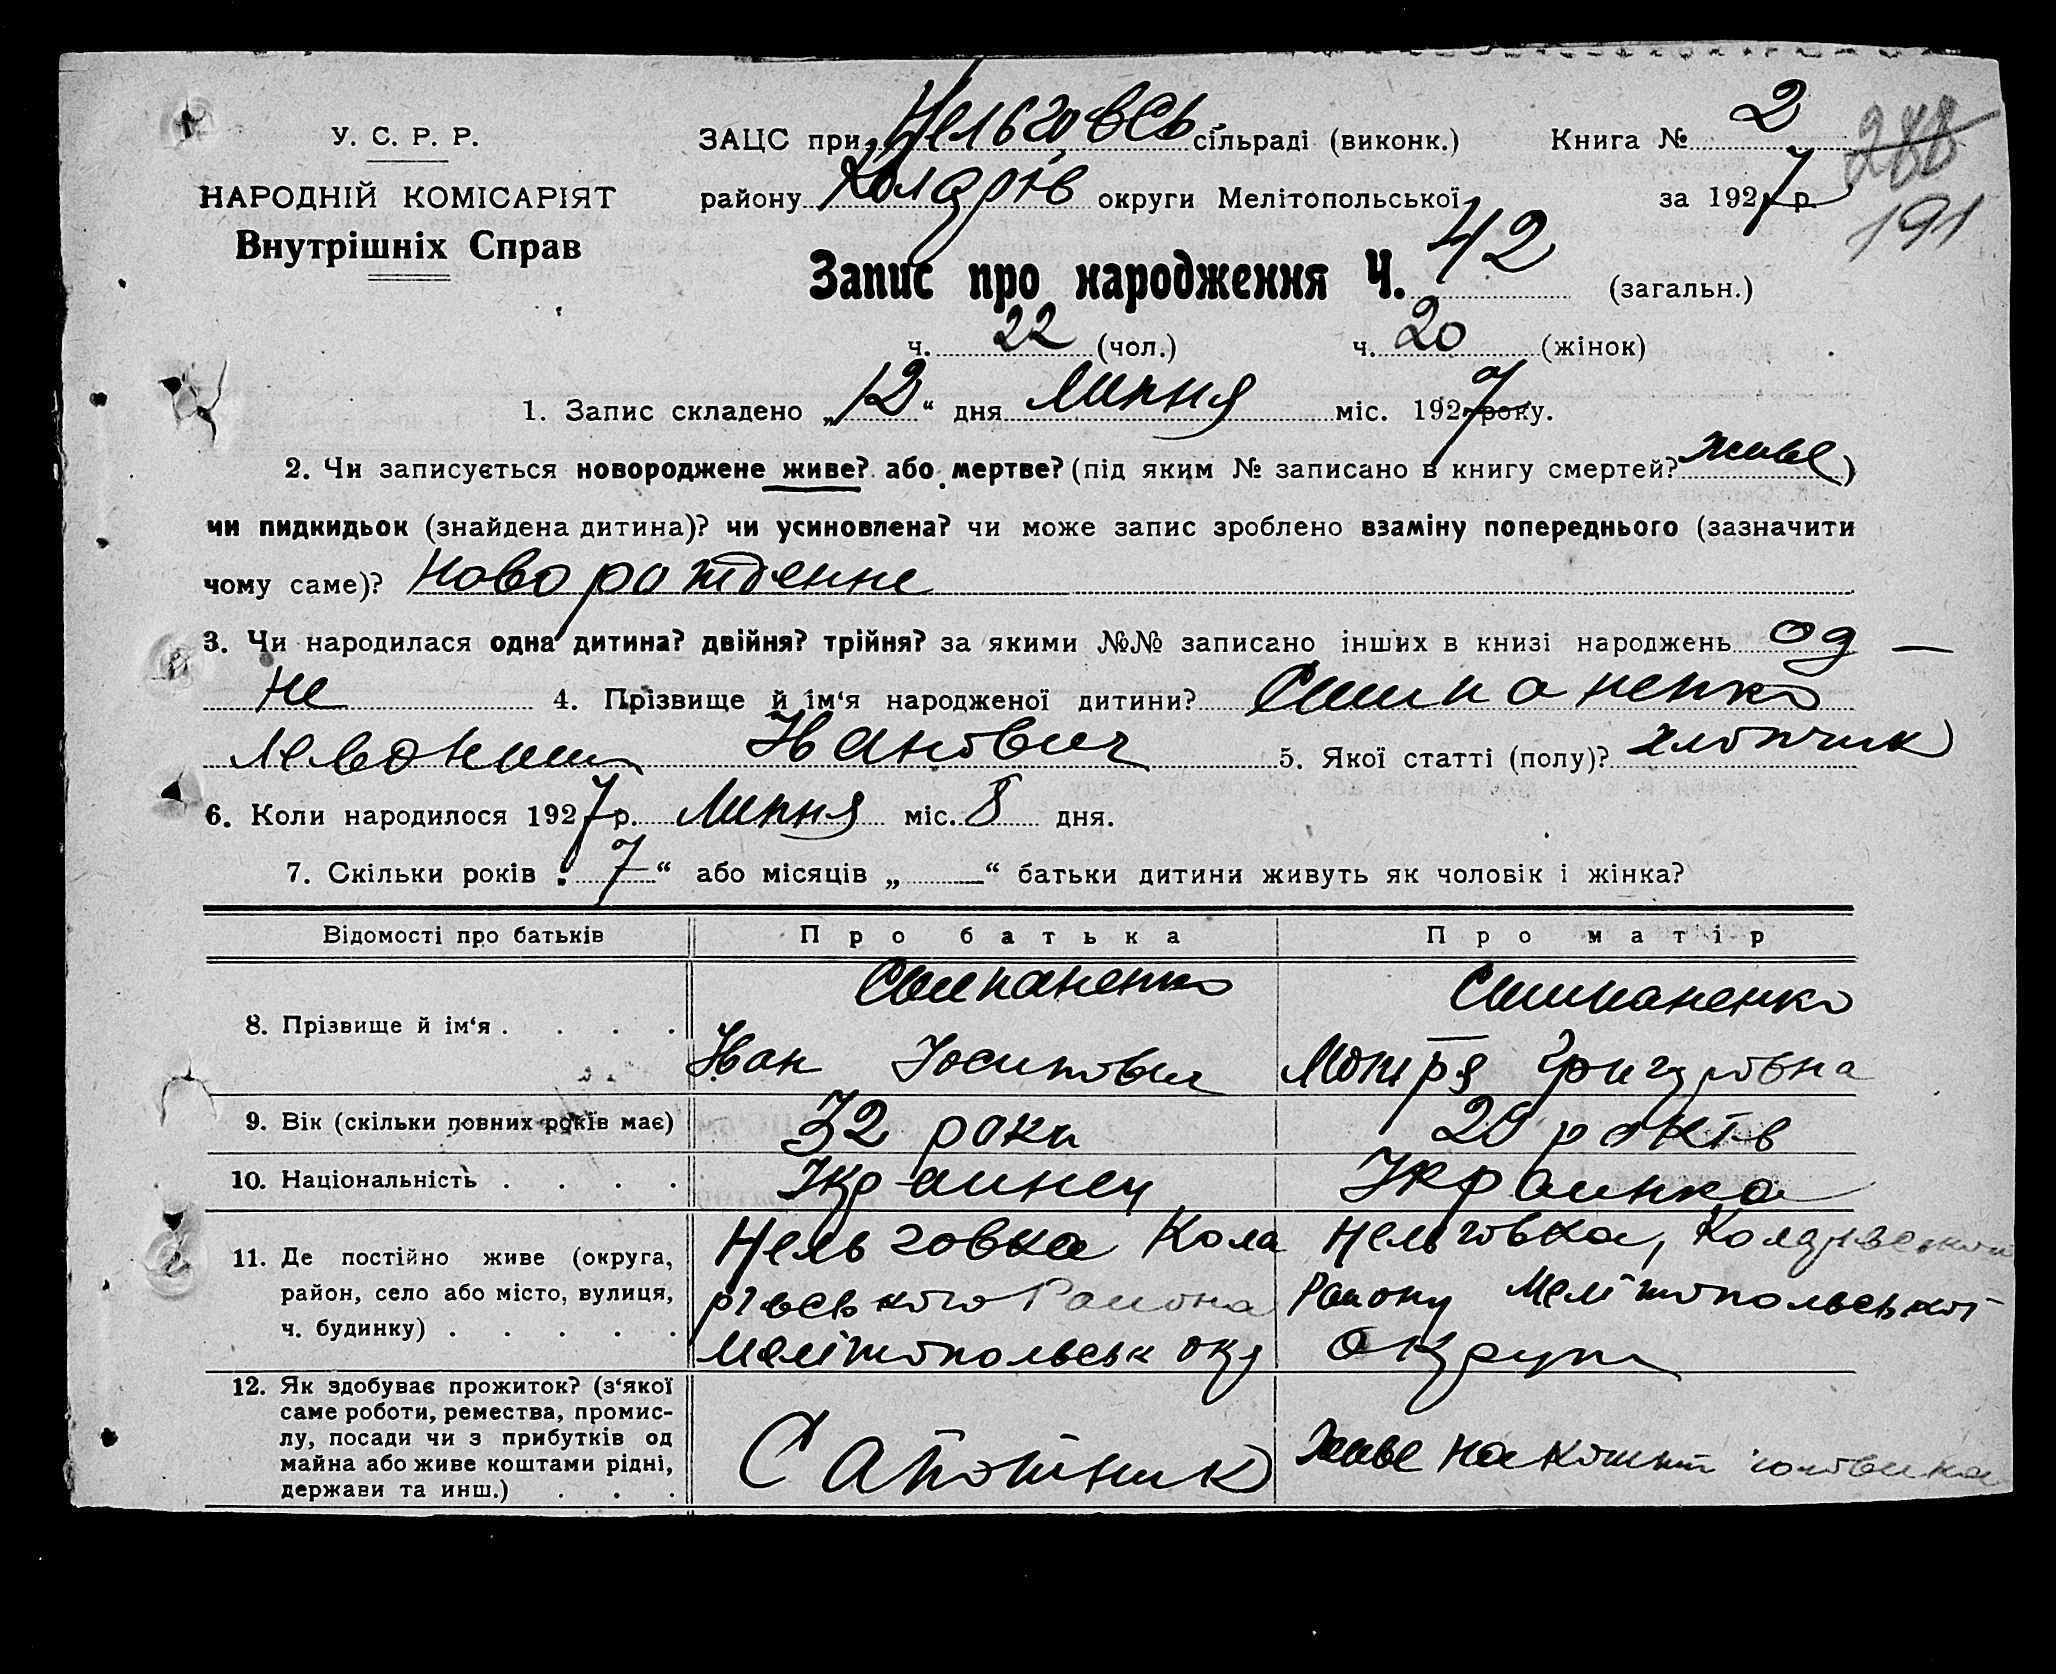 У. С. Р. Р.
НАРОДНІЙ КОМІСАРІЯТ
Внутрішніх Справ
ЗАЦС при Нельговсь сільраді (виконк.) Книга № 2
району Колярів округи Мелітопольської за 1927 р.
288
191
Запис про народження Ч. 42 (загальн.)
ч. 22 (чол.) ч. 20 (жінок)
1. Запис складено „12“ дня Липня міс. 1927 року.
2. Чи записується новороджене живе? або мертве? (під яким № записано в книгу смертей? живе)
чи пидкидьок (знайдена дитина)? чи усиновлена? чи може запис зроблено взаміну попереднього (зазначити
чому саме)? Новорожденне
3. Чи народилася одна дитина? двійня? трійня? за якими №№ записано інших в книзі народжень од—
не 4. Прізвище й ім‘я народженої дитини? Сшпаненко
Иванович 5. Якої статті (полу)? хлопчик
6. Коли народилося 1927 р. Липня міс. 8 дня.
7. Скільки років „7“ або місяців „—“ батьки дитини живуть як чоловік і жінка?
Відомості про батьків Про батька Про матір
8. Прізвище й ім‘я . . . .
Иван Юсипович
Мотря Григоровна
9. Вік (скільки повних років має) 32 роки 29 років
10. Національність . . . . Украинец Украинка
11. Де постійно живе (округа, район, село або місто, вулиця, ч. будинку) . . . . .
Нельговка Кола
рівського Района
Мелітопольськ окр
Нельговка, Колярівської
Району Мелітопольської
округи
12. Як здобуває прожиток? (з‘якої
саме роботи, ремества, промис-
лу, посади чи з прибутків од
майна або живе коштами рідні,
держави та инш.) . . .
Сапожник
живе на кошти чоловика